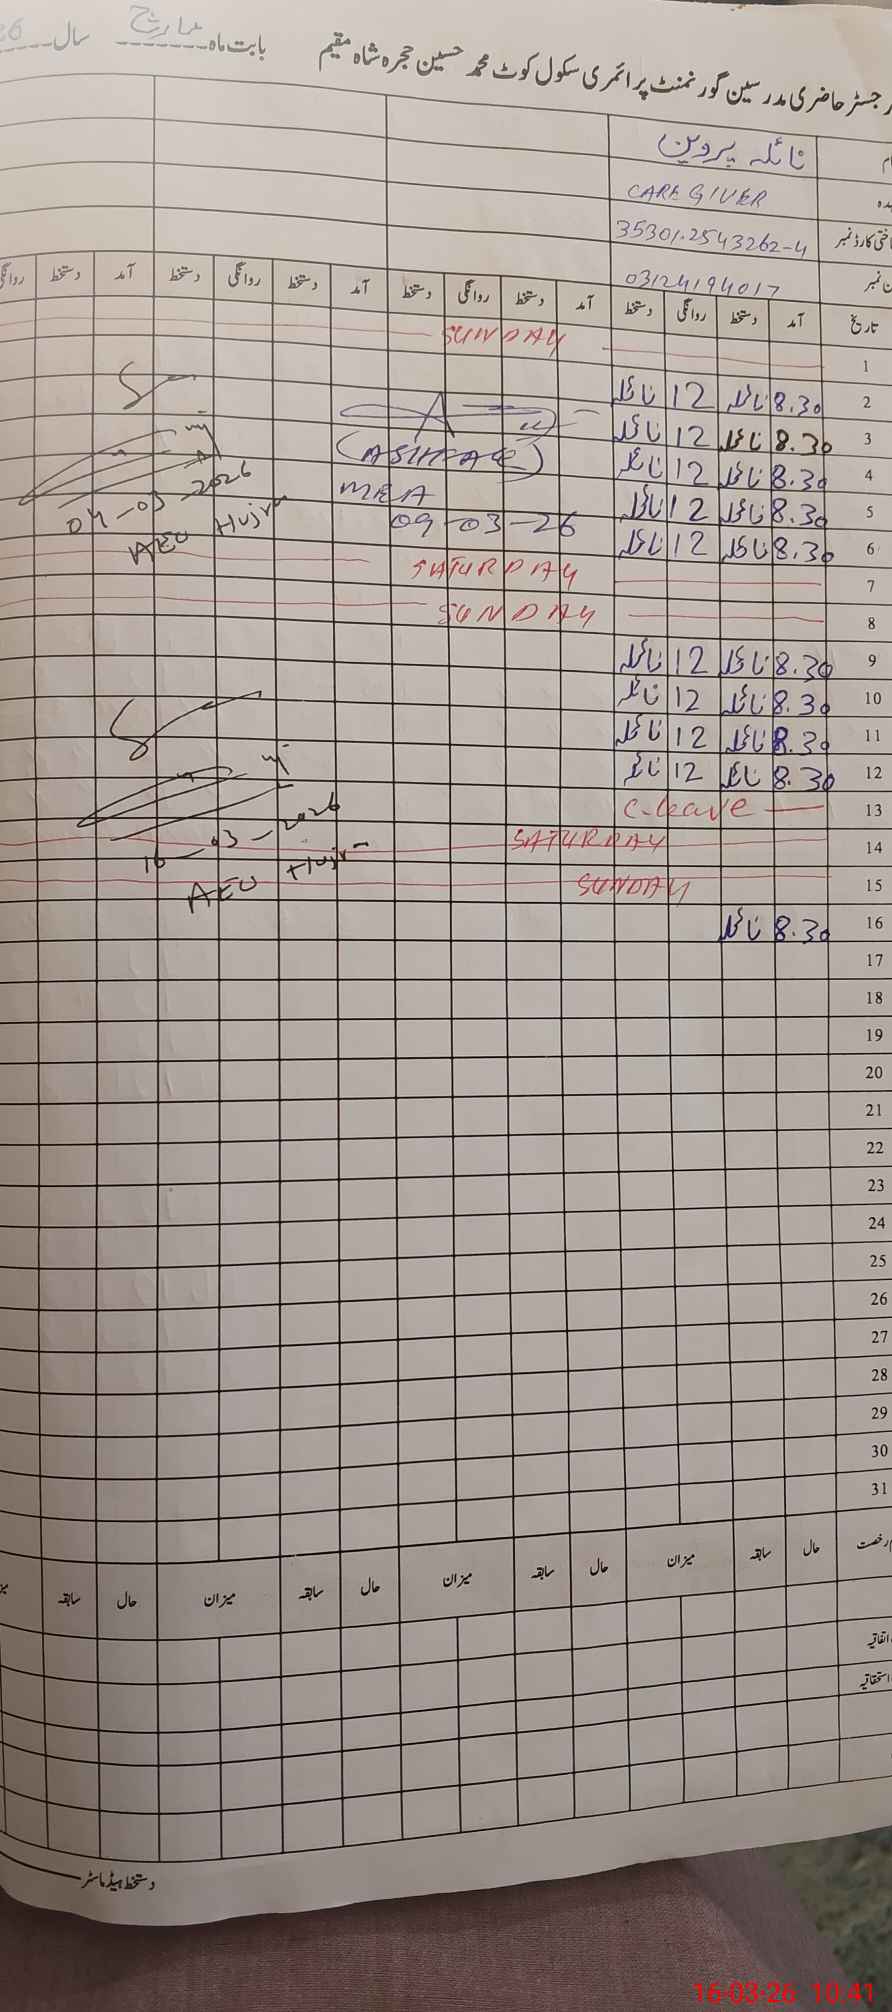 رجسٹر حاضری مدرسین گورنمنٹ پرائمری سکول کوٹ محمد حسین حجرہ شاہ مقیم بابت ماہ مارچ سال 26
نائلہ پروین
CARE GIVER
35301-2543262-4
03124194017
تاریخ آمد دستخط روانگی دستخط آمد دستخط روانگی دستخط آمد دستخط روانگی دستخط آمد دستخط روانگی
1 SUNDAY
2 8.30 نائلہ 12 نائلہ
3 8.30 نائلہ 12 نائلہ
4 8.30 نائلہ 12 نائلہ
5 8.30 نائلہ 12 نائلہ
6 8.30 نائلہ 12 نائلہ
(ASHFAQ)
MEA
09-03-26
04-03-2026
AEO Hujra
7 SATURDAY
8 SUNDAY
9 8.30 نائلہ 12 نائلہ
10 8.30 نائلہ 12 نائلہ
11 8.30 نائلہ 12 نائلہ
12 8.30 نائلہ 12 نائلہ
13 C-leave
14 SATURDAY
15 SUNDAY
16-03-2026
AEO Hujra
16 8.30 نائلہ
17
18
19
20
21
22
23
24
25
26
27
28
29
30
31
رخصت حال سابقہ میزان حال سابقہ میزان حال سابقہ میزان حال سابقہ
اتفاقیہ
استحقاقیہ
دستخط ہیڈ ماسٹر
16-03-26 10:41